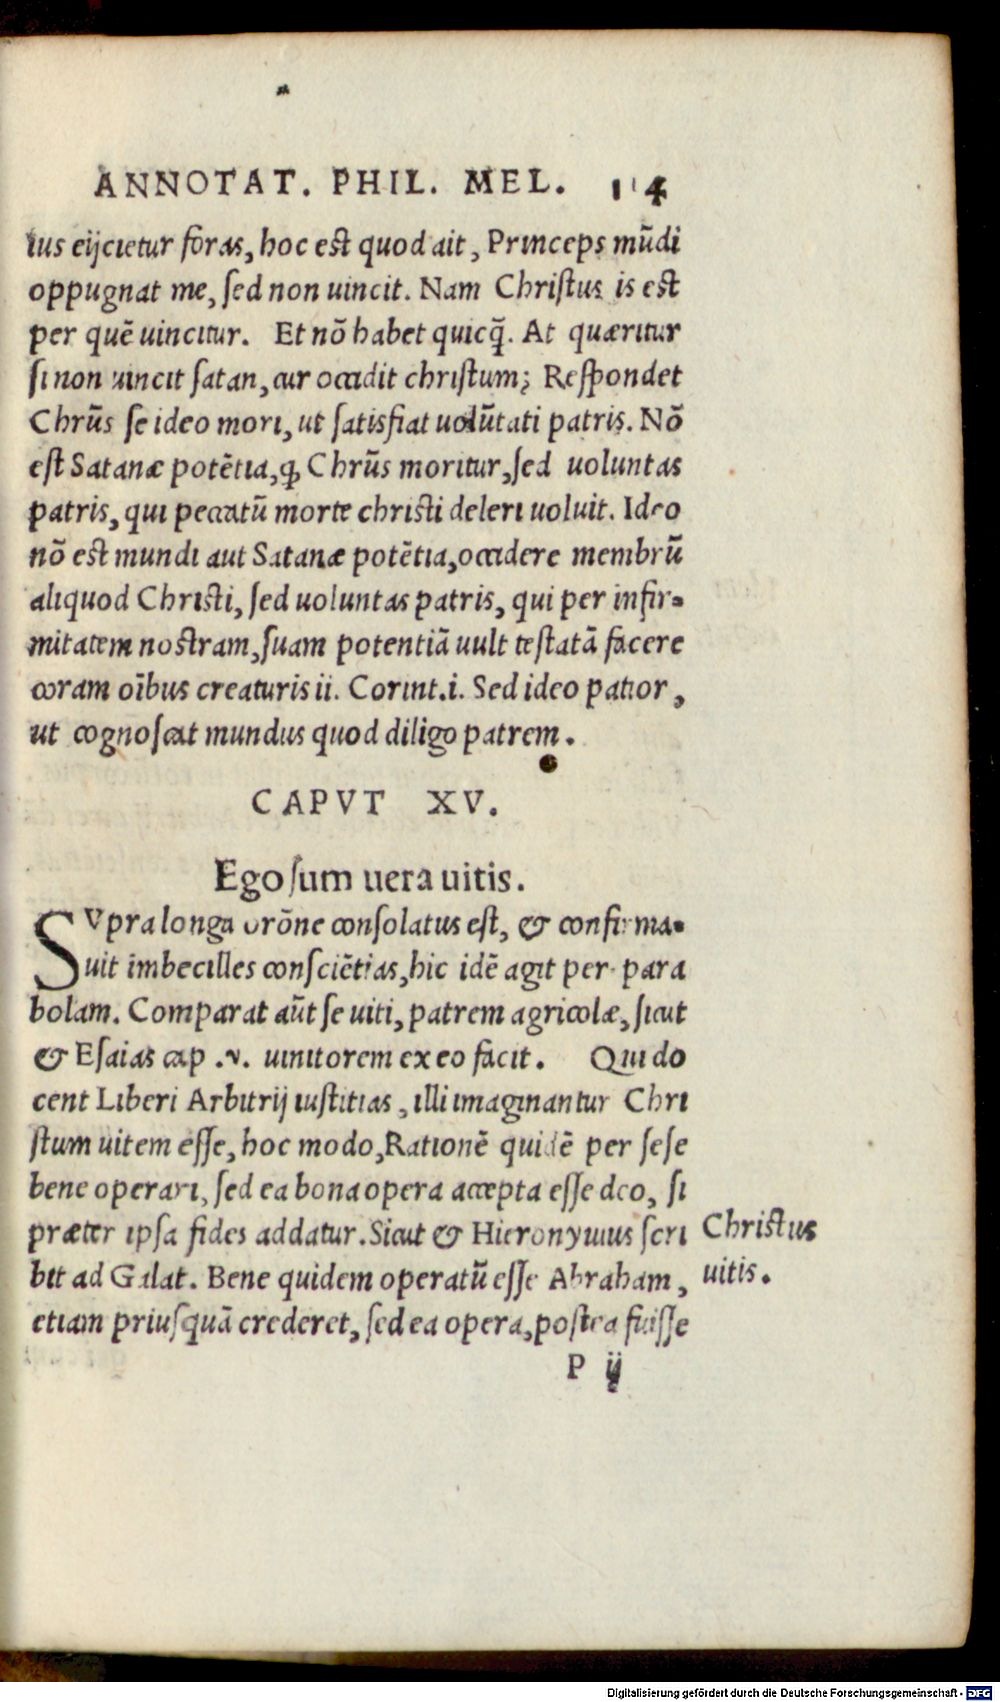 ANNOTAT. PHIL. MEL. 114
ius eijcietur foras, hoc est quod ait, Princeps mũdi
oppugnat me, ſed non uincit. Nam Chriſtus is est
per quẽ uincitur. Et nõ habet quicq̃. At quæritur
ſi non uincit ſatan, cur occidit chriſtum; Reſpondet
Chrũs ſe ideo mori, ut ſatisfiat uolũtati patris. Nõ
eſt Satanæ potẽtia, ꝙ Chrũs moritur, ſed uoluntas
patris, qui peccatũ morte christi deleri uoluit. Ideo
nõ est mundi aut Satanæ potẽtia, occidere membrũ
aliquod Christi, ſed uoluntas patris, qui per infir-
mitatem noſtram, ſuam potentiã uult teſtatã facere
coram oĩbus creaturis ii. Corint.i. Sed ideo patior,
ut cognoſcat mundus quod diligo patrem.
CAPVT XV.
Ego ſum uera uitis.
SVpra longa orõne conſolatus eſt, & confirma-
uit imbecilles conſciẽtias, hic idẽ agit per para
bolam. Comparat aũt ſe uiti, patrem agricolæ, ſicut
& Eſaias cap .v. uinitorem ex eo facit. Qui do
cent Liberi Arbitrij iuſtitias, illi imaginantur Chri
ſtum uitem eſſe, hoc modo, Rationẽ quidẽ per ſeſe
bene operari, ſed ea bona opera accepta eſſe deo, ſi
præter ipſa fides addatur. Sicut & Hieronymus ſcri
bit ad Galat. Bene quidem operatũ eſſe Abraham,
etiam priuſquã crederet, ſed ea opera, poſtea fuiſſe
Christus
uitis.
P ij
Digitalisierung gefördert durch die Deutsche Forschungsgemeinschaft - DFG